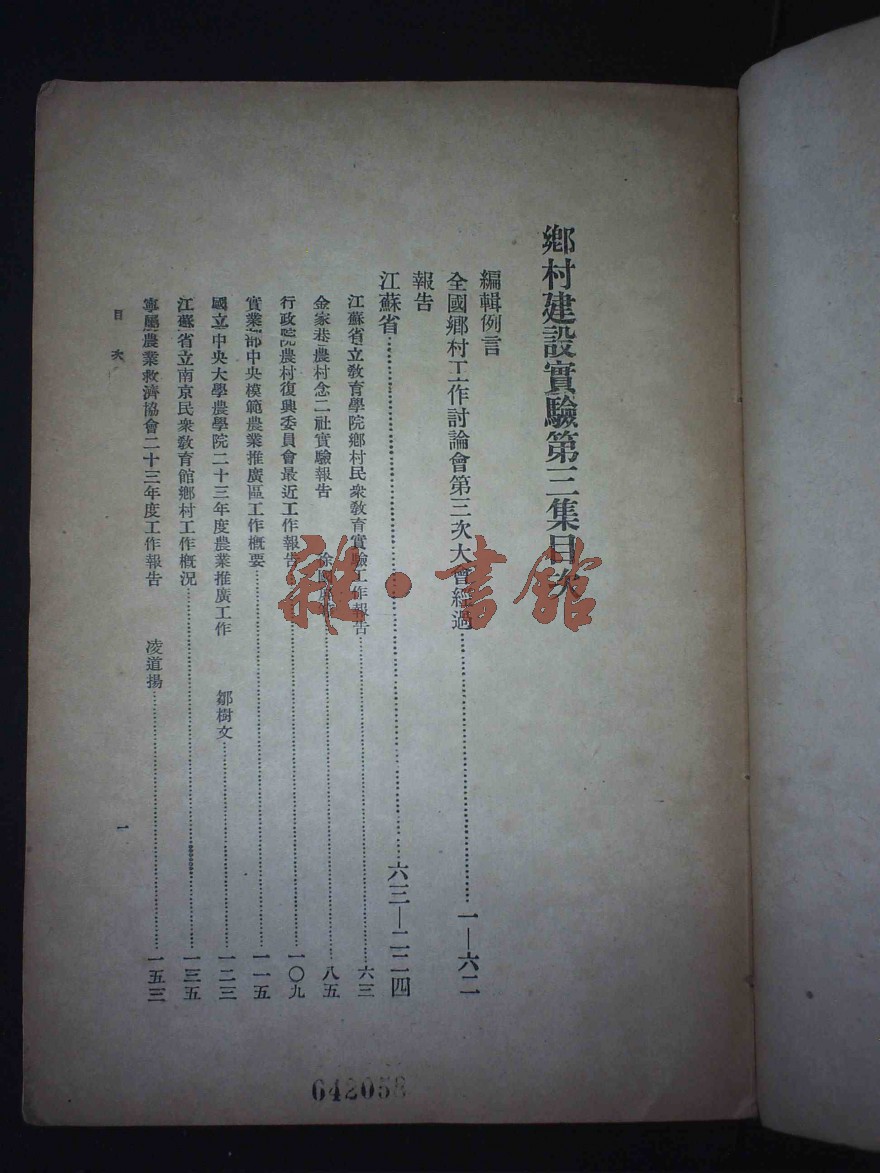 鄉村建設實驗第三集目次
編輯例言
全國鄉村工作討論會第三次大會經過………一—六二
報告
江蘇省………六三—二二四
江蘇省立敎育學院鄉村民衆敎育實驗工作報告………六三
金家巷農村念二社實驗報告 徐………八五
行政院農村復興委員會最近工作報告………一〇九
實業部中央模範農業推廣區工作槪要………一一五
國立中央大學農學院二十三年度農業推廣工作 鄒樹文………一二三
江蘇省立南京民衆敎育館鄉村工作槪況………一三五
寧屬農業救濟協會二十三年度工作報告 凌道揚………一五三
目次
一
雜·書館
642058